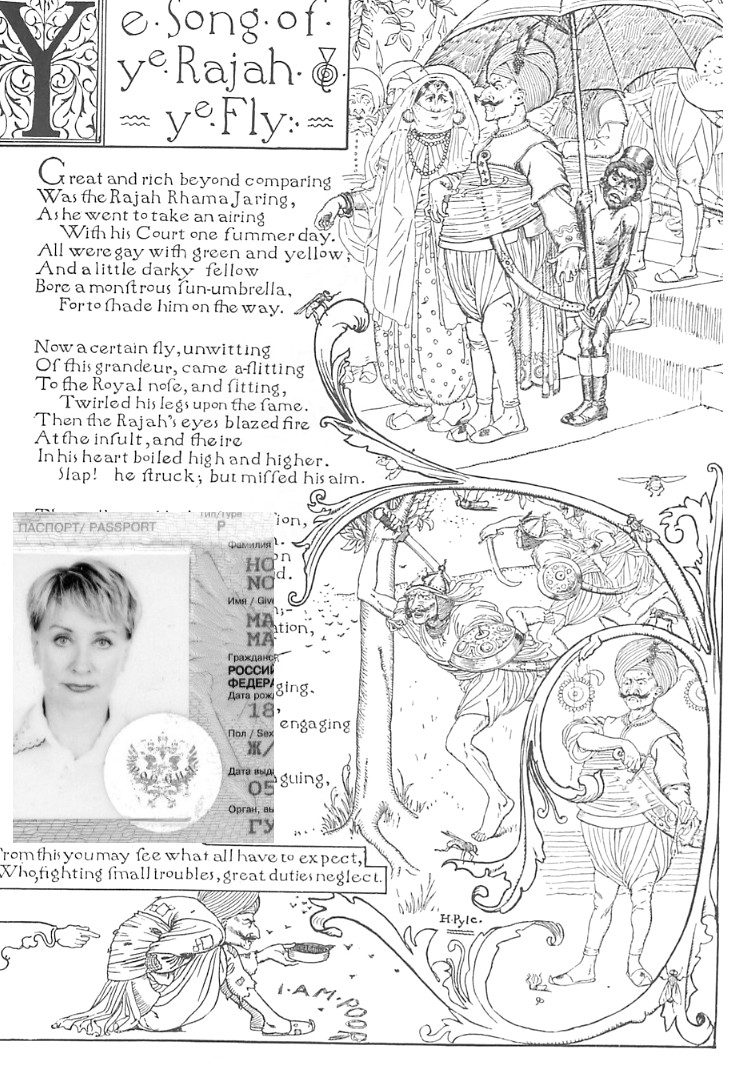 Ye Song of
yᵉ Rajah &
yᵉ Fly:
Great and rich beyond comparing
Was the Rajah Rhama Jaring,
As he went to take an airing
With his Court one ſummer day.
All were gay with green and yellow;
And a little darky fellow
Bore a monſtrous ſun-umbrella,
For to ſhade him on the way.
Now a certain fly, unwitting
Of this grandeur, came a-flitting
To the Royal noſe, and ſitting,
Twirled his legs upon the ſame.
Then the Rajah's eyes blazed fire
At the inſult, and the ire
In his heart boiled high and higher.
Slap! he ſtruck; but miſſed his aim.
ПАСПОРТ/ PASSPORT
Тип/Type
P
Фамилия
Имя /
РОССИЙ
ФЕДЕРА
Дата рож
18
Пол / Sex
Ж/
Дата выд
05
Орган, вы
ГУ
engaging
From this you may ſee what all have to expect,
Who, fighting ſmall troubles, great duties neglect.
H. Pyle.
I · AM · POOR